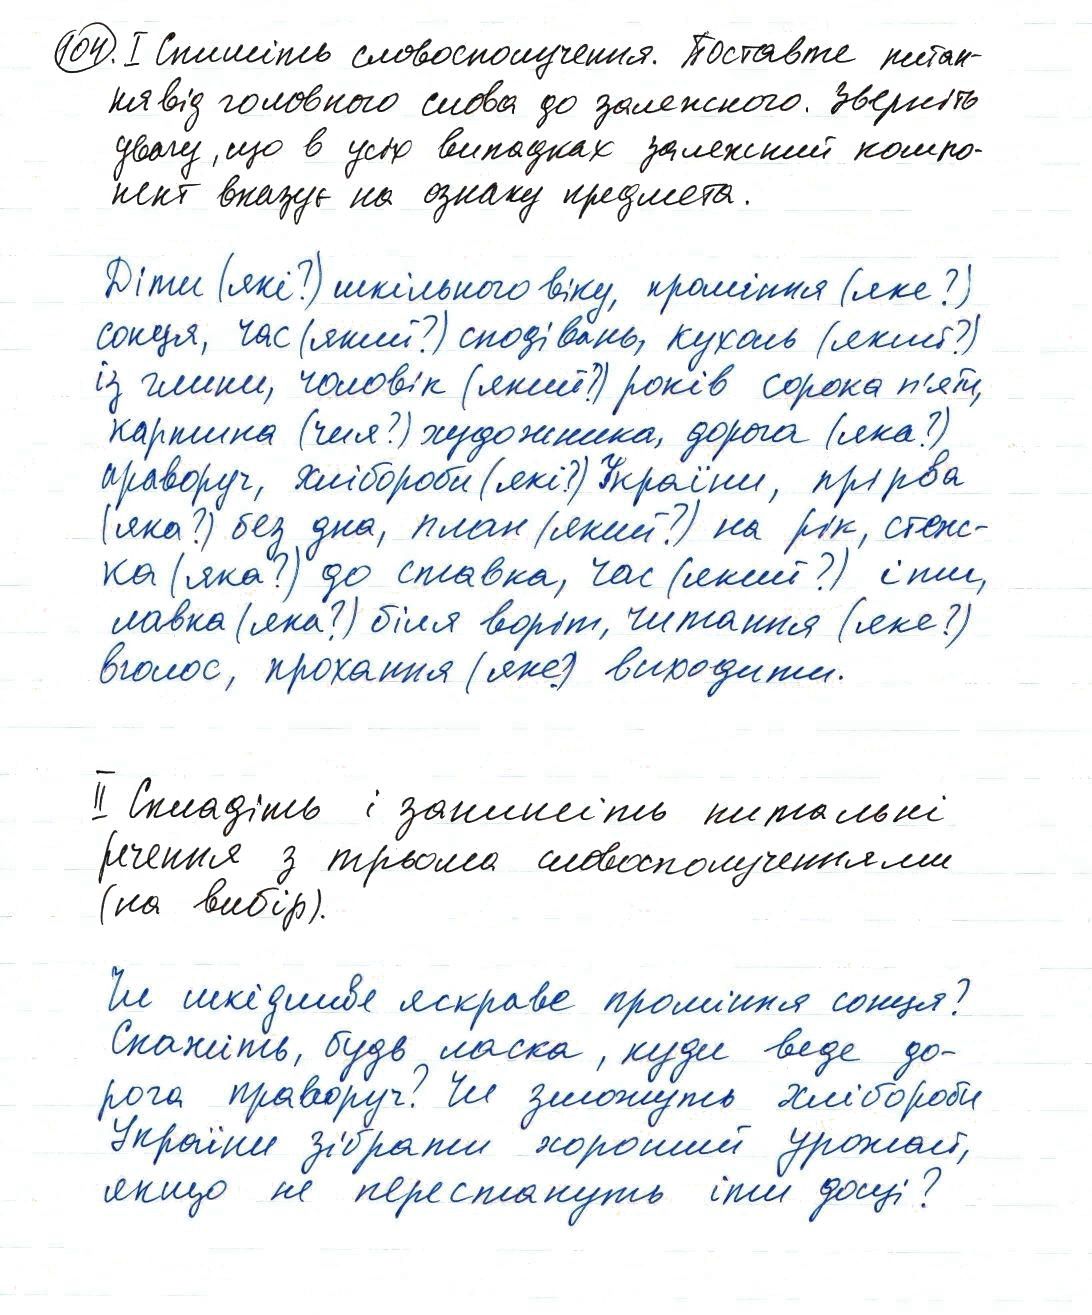 104. I Спишіть словосполучення. Поставте питан-
ня від головного слова до залежного. Зверніть
увагу, що в усіх випадках залежний компо-
нент вказує на ознаку предмета.
Діти (які?) шкільного віку, проміння (яке?)
сонця, час (який?) сподівань, кухоль (який?)
із глини, чоловік (який?) років сорока п'яти,
картина (чия?) художника, дорога (яка?)
праворуч, хлібороби (які?) України, прірва
(яка?) без дна, план (який?) на рік, стеж-
ка (яка?) до ставка, час (який?) іти,
лавка (яка?) біля воріт, читання (яке?)
вголос, прохання (яке?) виходити.
II Складіть і запишіть питальні
речення з трьома словосполученнями
(на вибір).
Чи шкідливе яскраве проміння сонця?
Скажіть, будь ласка, куди веде до-
рога праворуч? Чи зможуть хлібороби
України зібрати хороший урожай,
якщо не перестануть іти дощі?